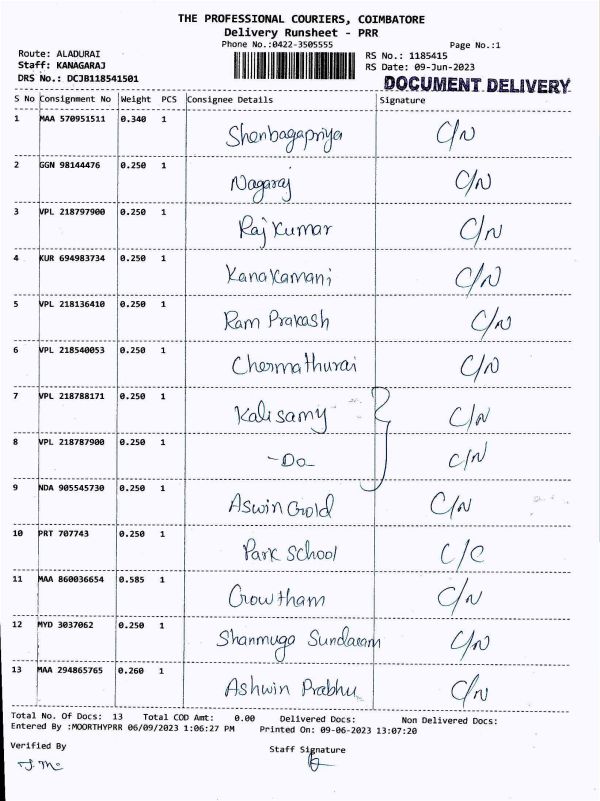 THE PROFESSIONAL COURIERS, COIMBATORE
Delivery Runsheet - PRR
Phone No.:0422-3505555 Page No.:1
Route: ALADURAI RS No.: 1185415
Staff: KANAGARAJ RS Date: 09-Jun-2023
DRS No.: DCJB118541501 DOCUMENT DELIVERY
S No Consignment No Weight PCS Consignee Details Signature
1 MAA 570951511 0.340 1 Shenbagapriya C/N
2 GGN 98144476 0.250 1 Nagaraj C/N
3 VPL 218797900 0.250 1 Raj Kumar C/N
4 KUR 694983734 0.250 1 Kanakamani C/N
5 VPL 218136410 0.250 1 Ram Prakash C/N
6 VPL 218540053 0.250 1 Chermathurai C/N
7 VPL 218788171 0.250 1 Kalisamy C/N
8 VPL 218787900 0.250 1 -Do- C/N
9 NDA 905545730 0.250 1 Aswin Gold C/N
10 PRT 707743 0.250 1 Park School C/C
11 MAA 860036654 0.585 1 Gowtham C/N
12 MYD 3037062 0.250 1 Shanmuga Sundaram C/N
13 MAA 294865765 0.260 1 Ashwin Prabhu C/N
Total No. Of Docs: 13 Total COD Amt: 0.00 Delivered Docs: Non Delivered Docs:
Entered By :MOORTHYPRR 06/09/2023 1:06:27 PM Printed On: 09-06-2023 13:07:20
Verified By Staff Signature